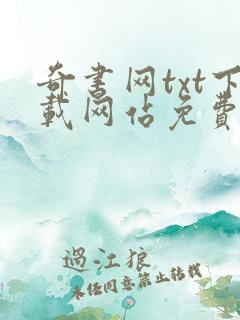 奇書网txt下
載网佔免費
過江狼
未经同意禁止转载